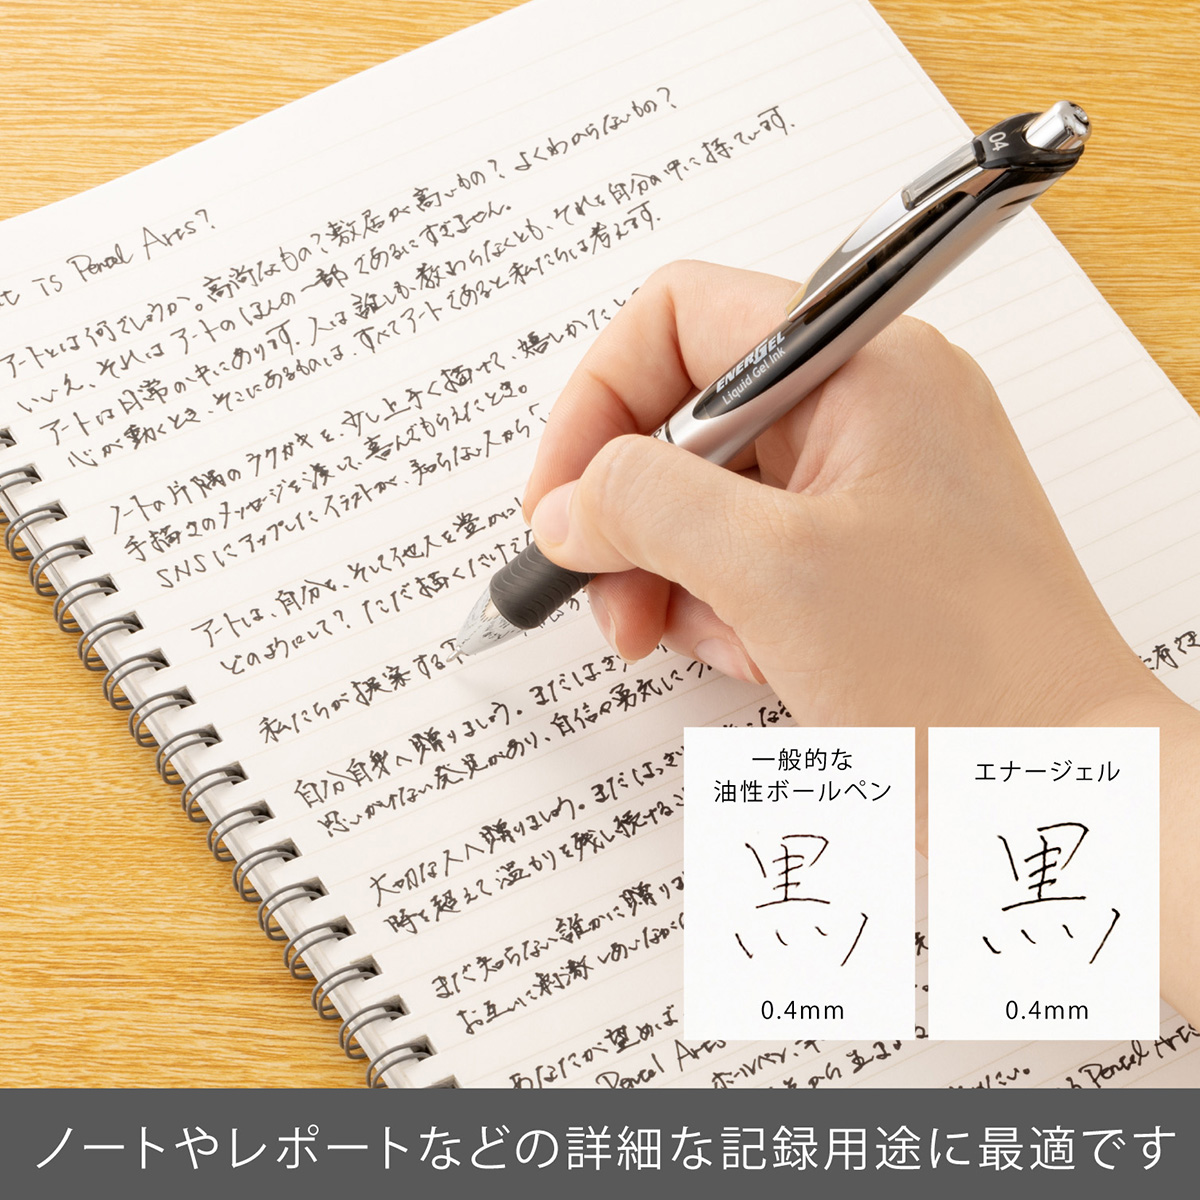 What Is Pentel Arts?
アートとは何でしょうか。高尚なもの？敷居が高いもの？よくわからないもの？
いいえ、それはアートのほんの一部であるにすぎません。
アートは日常の中にあります。人は誰しも教わらなくとも、それを自分の中に探ています。
心が動くとき、そこにあるものは、すべてアートであると私たちは考えます。
ノートの片隅のラクガキを、少し上手く描けて、嬉しかったと
手描きのメッセージを渡して、喜んでもらえたとき。
SNSにアップしたイラストが、知らない人から「
アートは、自分を、そして他人を豊かに
どのようにして？ただ描くだけで
私たちが提案する
自分自身へ贈りましょう。まだはっきり
思いがけない発見があり、自信や勇気に
大切な人へ贈りましょう。まだはっきり
時を超えて温もりを残し続けるこ
まだ知らない誰かに贈りま
お互いに刺激しあいながら
あなたが望めば
Pentel Arts
ボールペン、
から生まれ
Pentel Arts
04
ENERGEL
Liquid Gel Ink
一般的な
油性ボールペン
黒
0.4mm
エナージェル
黒
0.4mm
ノートやレポートなどの詳細な記録用途に最適です